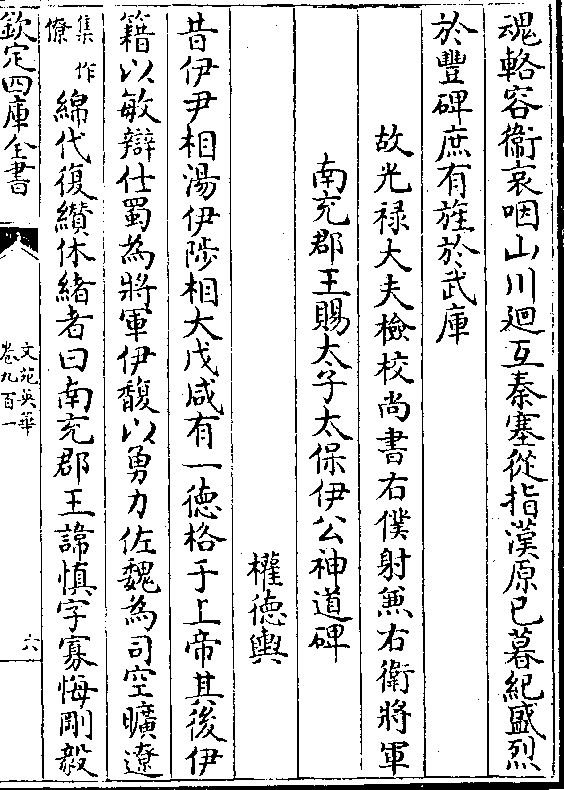 魂輅容衞哀咽山川廻互秦塞從指漢原已暮紀盛烈
於豐碑庶有旌於武庫
故光禄大夫檢校尚書右僕射兼右衛將軍
南充郡王賜太子太保伊公神道碑
權德輿
昔伊尹相湯伊陟相大戊咸有一德格于上帝其後伊
籍以敏辯仕蜀為將軍伊馥以勇力佐魏為司空曠遼
集作
僚
綿代復纘休緒者曰南充郡王諱慎字寡悔剛毅
欽定四庫全書
文苑英華
卷九百一
六